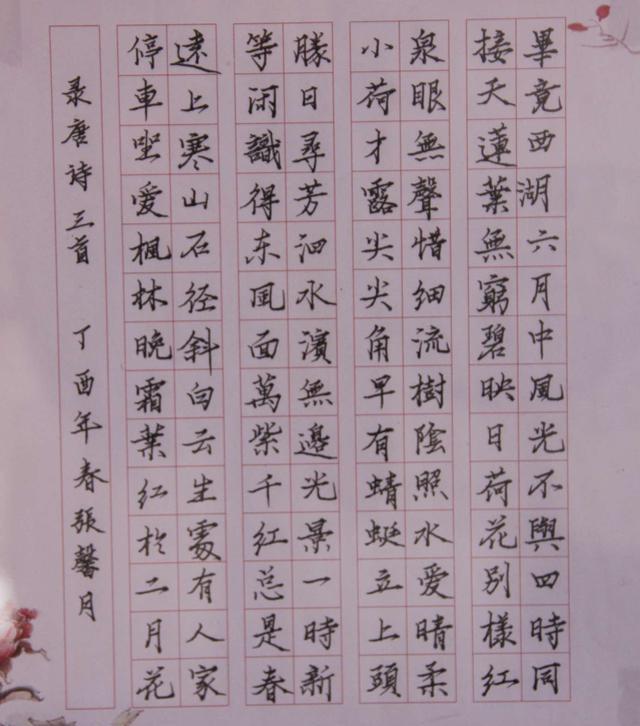 畢竟西湖六月中風光不與四時同
接天蓮葉無窮碧映日荷花別樣紅
泉眼無聲惜细流樹陰照水愛晴柔
小荷才露尖尖角早有蜻蜓立上頭
勝日尋芳泗水濱無邊光景一時新
等闲識得东風面萬紫千红总是春
遠上寒山石径斜白云生處有人家
停車坐爱楓林晚霜葉红於二月花
录唐诗三首 丁酉年春張馨月